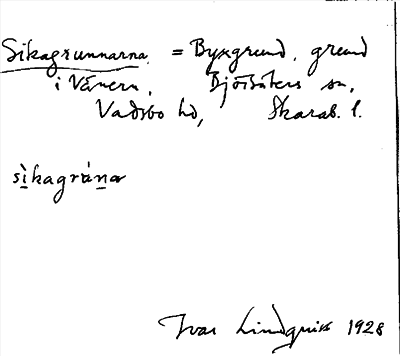 Sikagrunnarna, = Byxgrund, grund
i Vänern, Björsäters sn,
Vadsbo hd, Skarab. l.
sìkagrúnar
Ivar Lindquist 1928